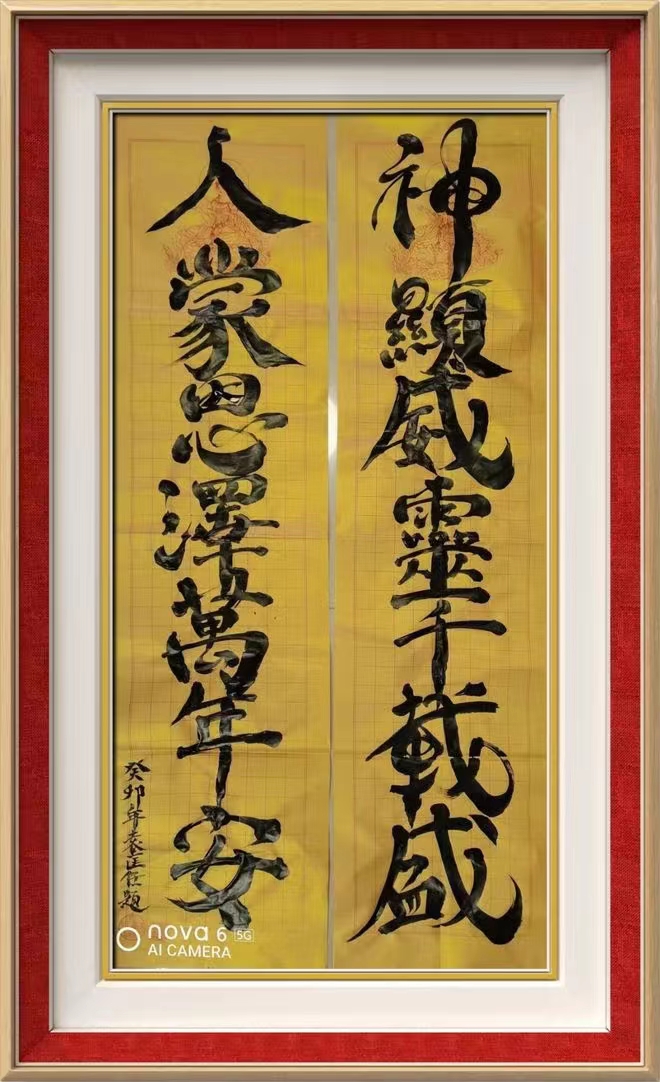 神顯威靈千載盛
人蒙恩澤萬年安
癸卯年題
nova 6 5G
AI CAMERA